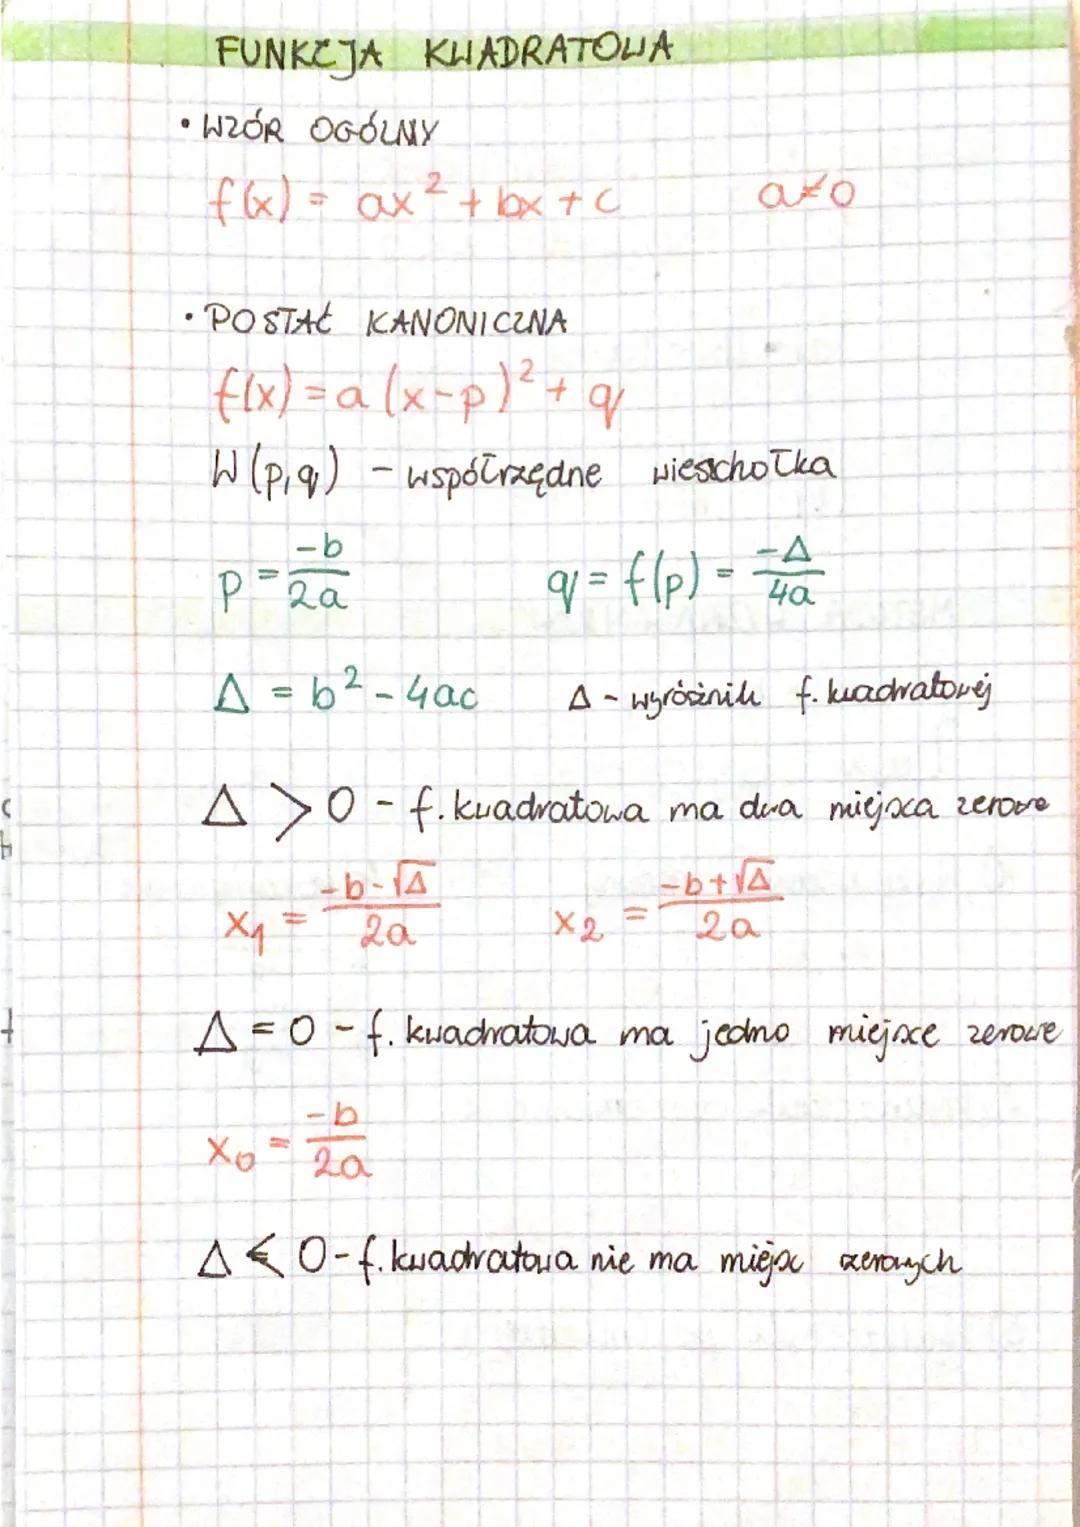 FUNKCJA KWADRATOWA
• WZÓR OGÓLNY
f(x) = ax² + bx + c a≠0
• POSTAĆ KANONICZNA
f(x) = a(x-p)² + q
W(p,q) - współrzędne wieschołka
p = -b/2a q = f(p) = -Δ/4a
Δ = b² - 4ac Δ - wyróżnik f. kwadratowej
Δ > 0 - f. kwadratowa ma dwa miejsca zerowe
x₁ = -b-√Δ/2a x₂ = -b+√Δ/2a
Δ = 0 - f. kwadratowa ma jedno miejsce zerowe
x₀ = -b/2a
Δ < 0 - f. kwadratowa nie ma miejsc zerowych